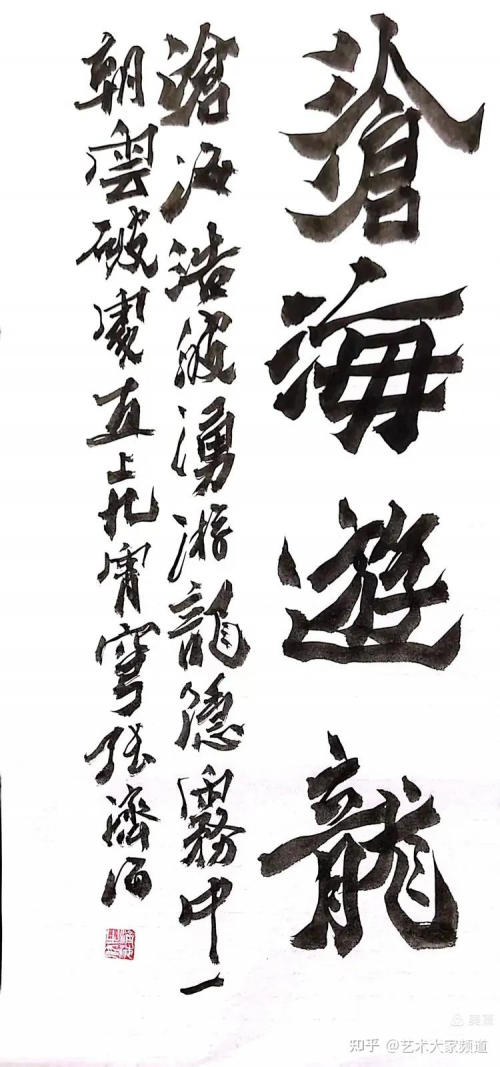 滄海遊龍
滄海浩波湧游龍隱霧中一
朝雲破直上九霄穹张濟海
知乎 @艺术大家频道